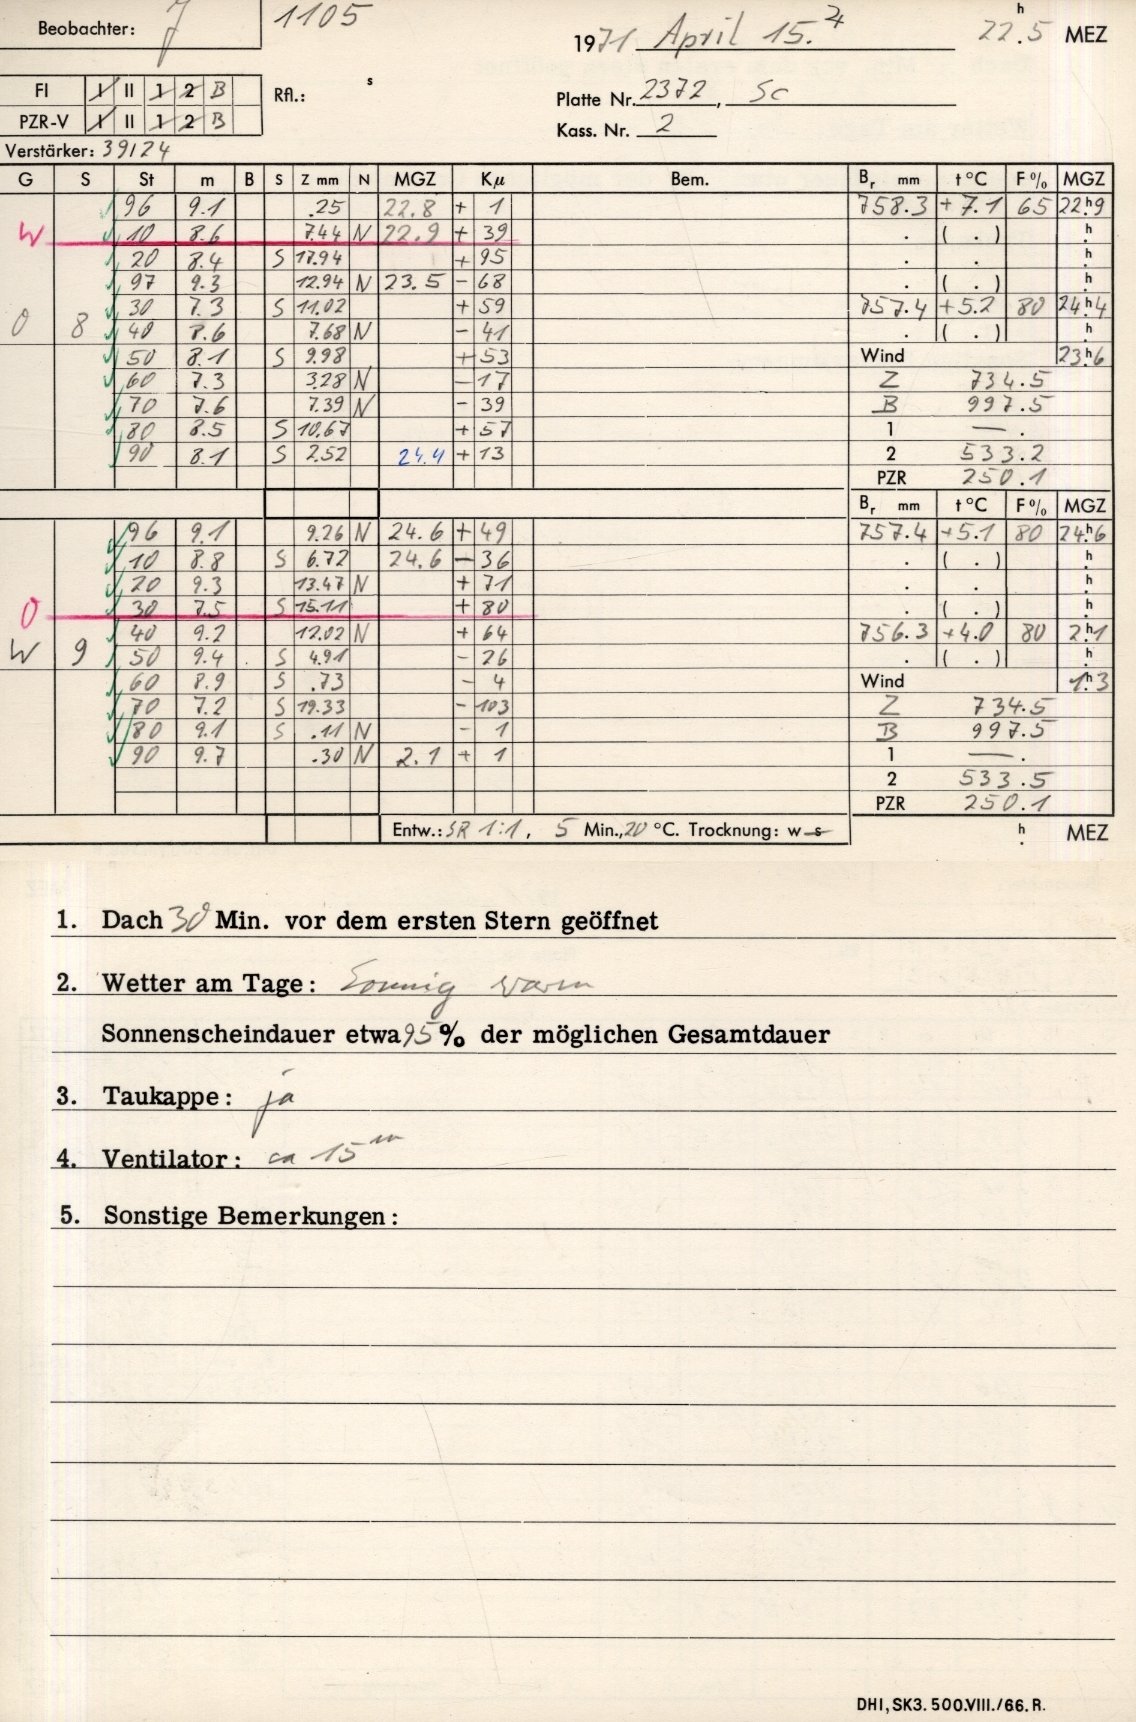 Beobachter: J 1105 1971 April 15. 22.5 h MEZ
FI I II 1 2 B Rfl.: s Platte Nr. 2372, Sc
PZR-V I II 1 2 B Kass. Nr. 2
Verstärker: 39/24
G S St m B S Z mm N MGZ Kμ Bem. Br mm t°C F% MGZ
96 9.1 .25 22.8 + 1 758.3 + 7.1 65 22.h9
W 10 8.6 7.44 N 22.9 + 39 . ( . ) h
20 8.4 S 17.94 + 95 . . h
97 9.3 12.94 N 23.5 - 68 . ( . ) h
30 7.3 S 11.02 + 59 757.4 +5.2 80 24.h4
O 8 40 8.6 7.68 N - 41 . ( . ) h
50 8.1 S 9.98 + 53 Wind 23.h6
60 7.3 3.28 N - 17 Z 734.5
70 7.6 7.39 N - 39 B 997.5
80 8.5 S 10.67 + 57 1 — .
90 8.1 S 2.52 24.4 + 13 2 533.2
PZR 250.1
Br mm t°C F% MGZ
96 9.1 9.26 N 24.6 + 49 757.4 +5.1 80 24.h6
10 8.8 S 6.72 24.6 - 36 . ( . ) h
20 9.3 13.47 N + 71 . . h
O 30 7.5 S 15.11 + 80 . ( . ) h
40 9.2 12.02 N + 64 756.3 +4.0 80 2.h1
W 9 50 9.4 S 4.91 - 26 . ( . ) h
60 8.9 S .73 - 4 Wind 1.h3
70 7.2 S 19.33 - 103 Z 734.5
80 9.1 S .11 N - 1 B 997.5
90 9.7 .30 N 2.1 + 1 1 — .
2 533.5
PZR 250.1
Entw.: SR 1:1, 5 Min., 20 °C. Trocknung: w s h MEZ
1. Dach 30 Min. vor dem ersten Stern geöffnet
2. Wetter am Tage: Sonnig warm
Sonnenscheindauer etwa 95 % der möglichen Gesamtdauer
3. Taukappe: ja
4. Ventilator: ca 15m
5. Sonstige Bemerkungen:
DHI, SK3. 500.VIII./66. R.